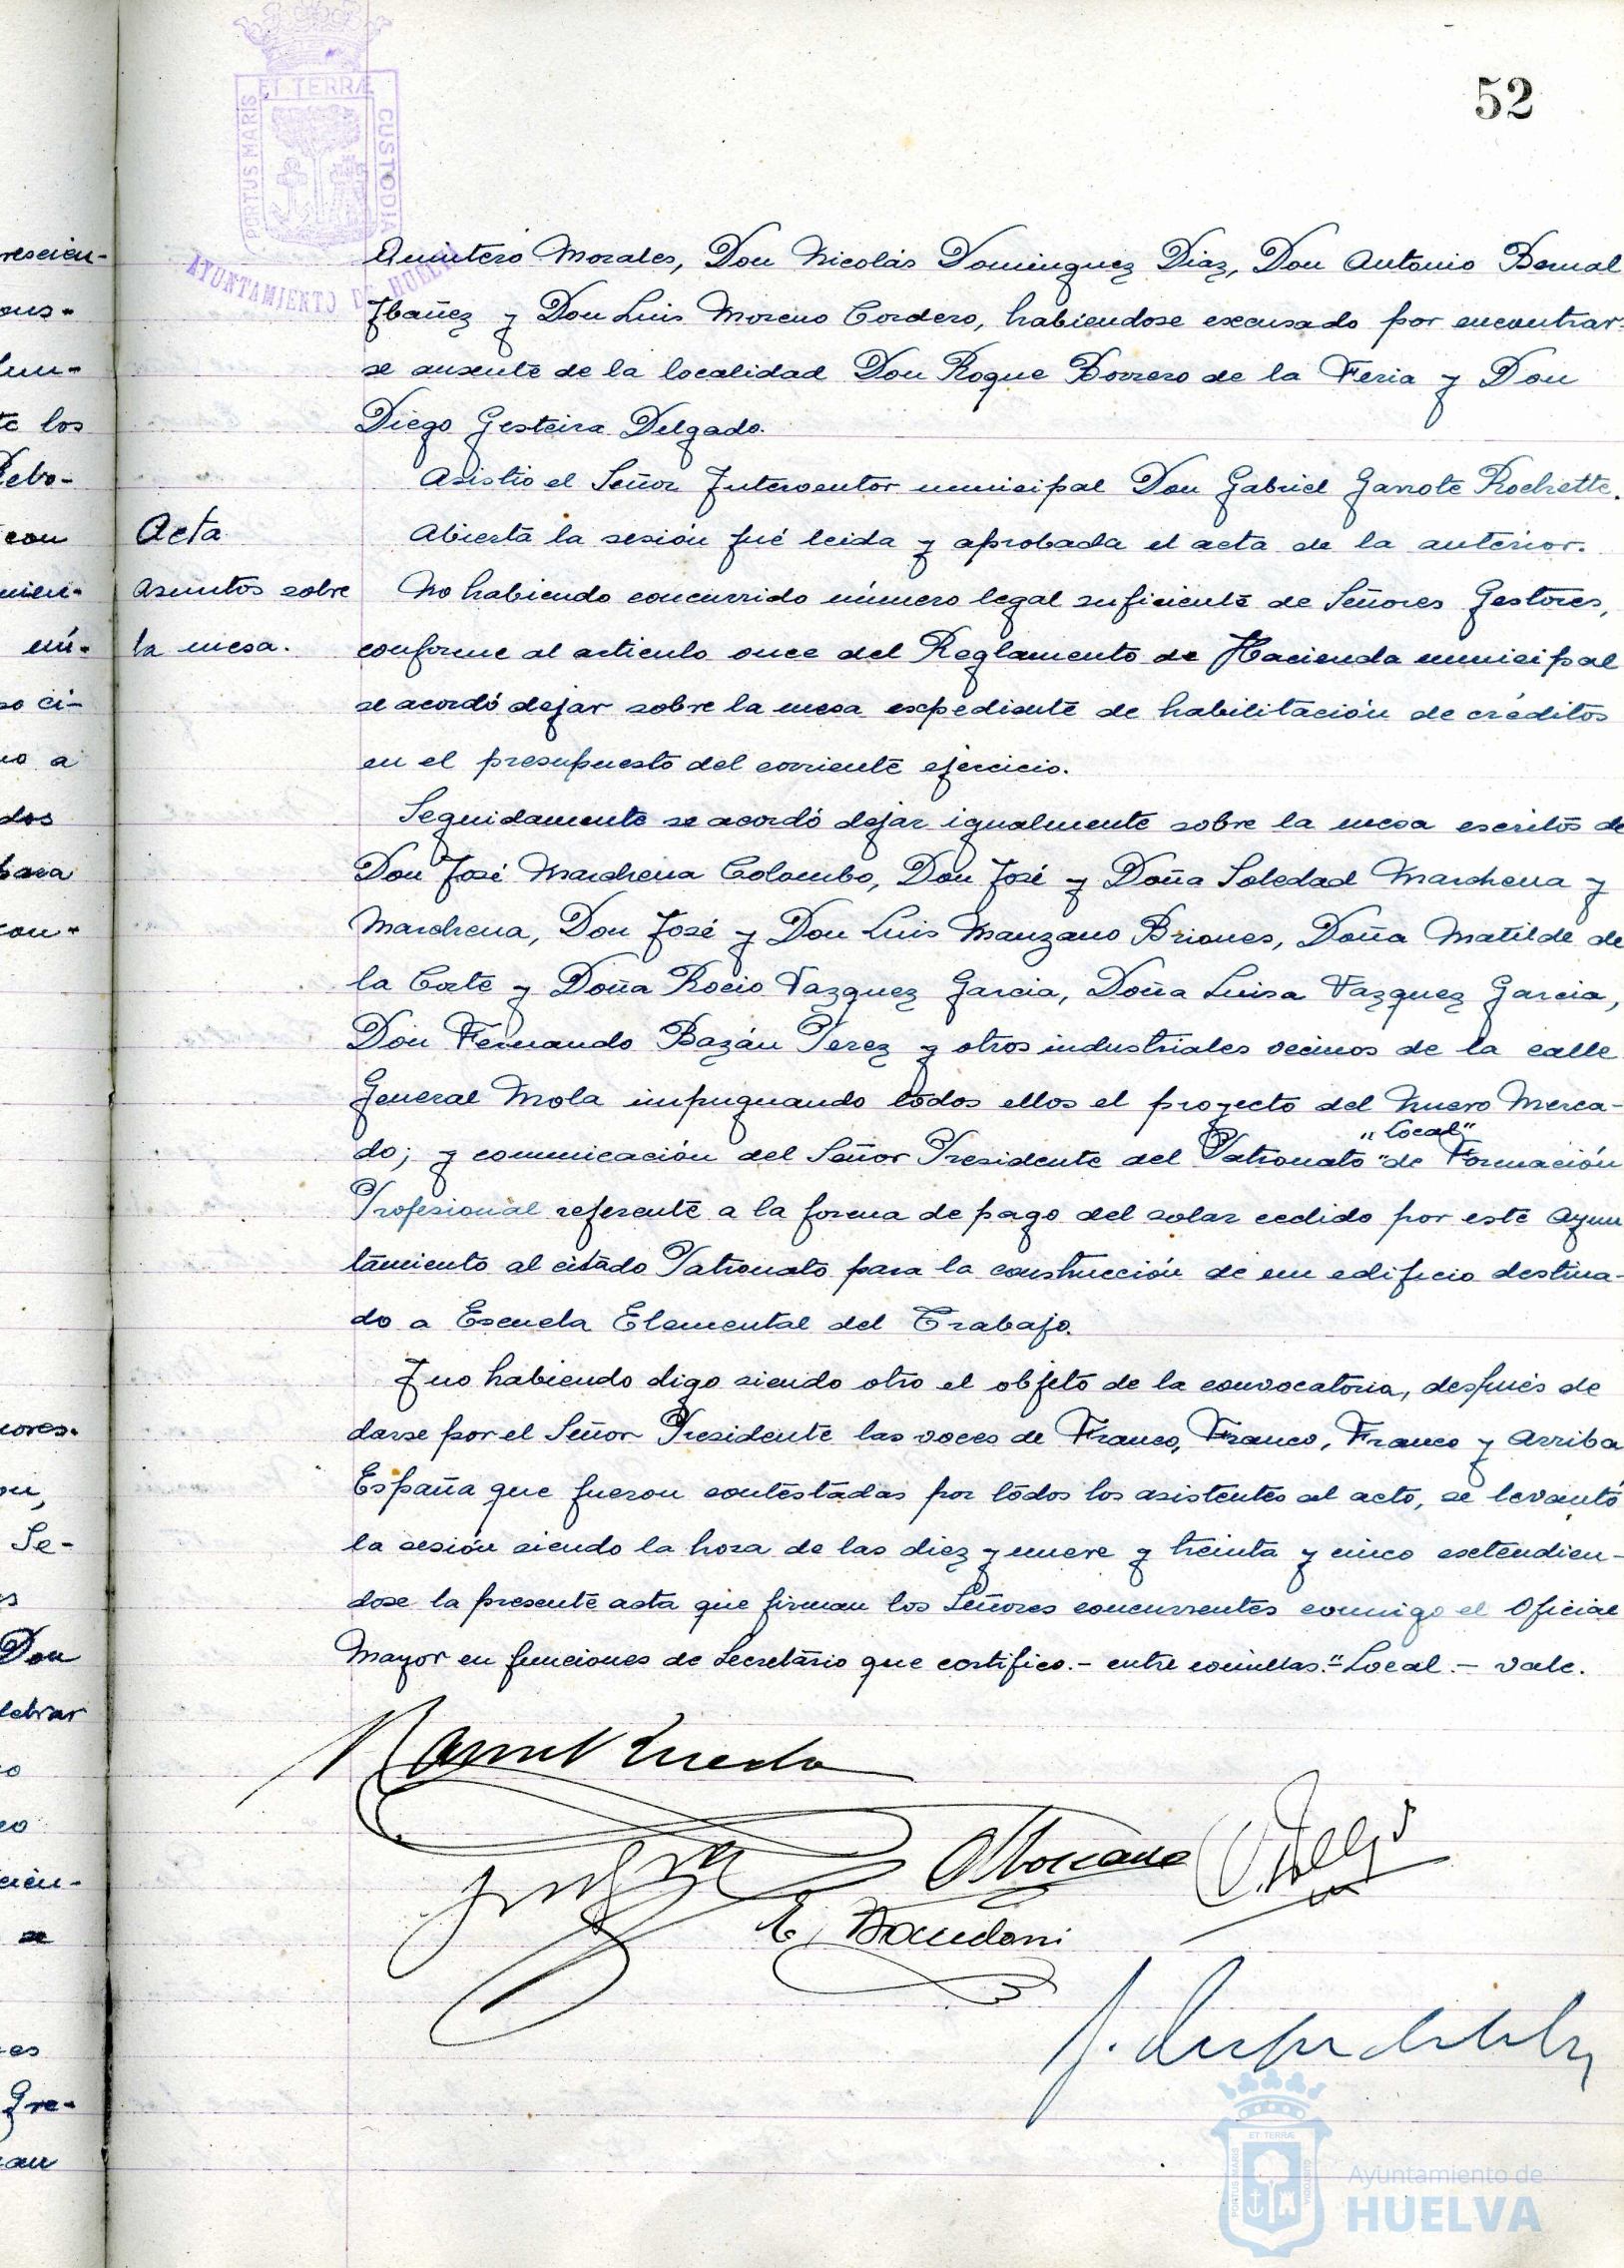 52
PORTUS MARIS ET TERRÆ CUSTODIA
AYUNTAMIENTO DE HUELVA
Quintero Morales, Don Nicolás Dominguez Diaz, Don Antonio Bernal
Ibañez y Don Luis Moreno Cordero, habiendose excusado por encontrar-
se ausente de la localidad Don Roque Borrero de la Feria y Don
Diego Gesteira Delgado.
Asistio el Señor Interventor municipal Don Gabriel Garrote Rochette.
Acta.
Abierta la sesión fué leida y aprobada el acta de la anterior.
Asuntos sobre
la mesa.
No habiendo concurrido número legal suficiente de Señores Gestores,
conforme al articulo once del Reglamento de Hacienda municipal
se acordó dejar sobre la mesa expediente de habilitación de créditos
en el presupuesto del corriente ejercicio.
Seguidamente se acordó dejar igualmente sobre la mesa escritos de
Don José Marchena Colombo, Don José y Doña Soledad Marchena y
Marchena, Don José y Don Luis Manzano Briones, Doña Matilde de
la Corte y Doña Rocio Vazquez Garcia, Doña Luisa Vazquez Garcia,
Don Fernando Bazán Perez y otros industriales vecinos de la calle
General Mola impugnando todos ellos el proyecto del Nuevo Merca-
"Local"
do; y comunicación del Señor Presidente del Patronato "de Formación
Profesional referente a la forma de pago del solar cedido por este Ayun
tamiento al citado Patronato para la construcción de un edificio destina-
do a Escuela Elemental del Trabajo.
Y no habiendo digo siendo otro el objeto de la convocatoria, después de
darse por el Señor Presidente las voces de Franco, Franco, Franco y Arriba
España que fueron contestadas por todos los asistentes al acto, se levantó
la sesión siendo la hora de las diez y nueve y treinta y cinco extendien-
dose la presente acta que firman los Señores concurrentes conmigo el Oficial
Mayor en funciones de Secretario que certifico.- entre comillas."Local.- vale.
E,
ET TERRÆ
PORTUS MARIS
CUSTODIA
Ayuntamiento de
HUELVA
rescien-
te los
con
mien-
so ci-
no a
dos
con-
Se-
Don
lebrar
cien-
se